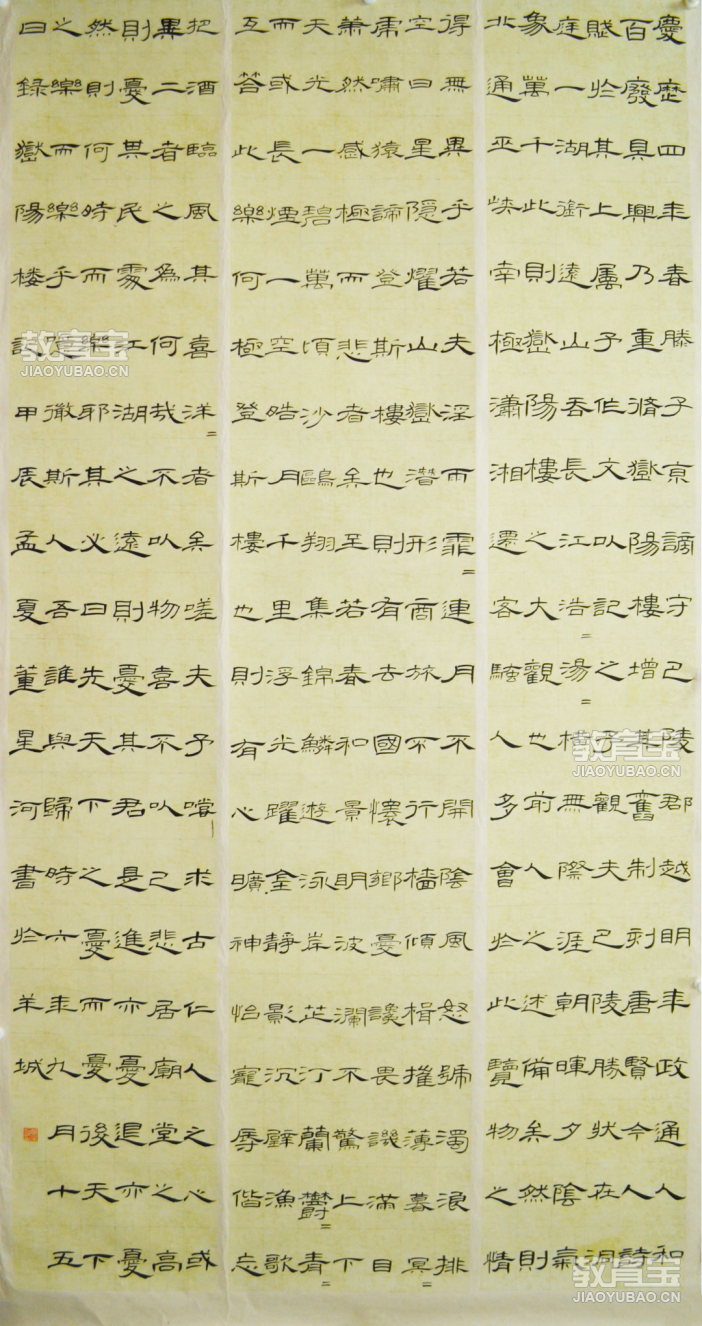 慶歷四年春滕子京謫守巴陵郡越明年政通人和
百廢具興乃重脩嶽陽樓增其舊制刻唐賢今人詩
賦於其上属予作文以記之予觀夫巴陵勝狀在洞
庭一湖銜遠山吞長江浩=湯=橫無際涯朝暉夕陰氣
象萬千此則嶽陽樓之大觀也前人之述備矣然則
北通巫峽南極瀟湘遷客騷人多會於此覽物之情
得無異乎若夫淫雨霏=連月不開陰風怒號濁浪排
空日星隱耀山嶽潛形商旅不行檣傾楫摧薄暮冥=
虎嘯猿諦登斯樓也則有去國懷鄉憂讒畏譏滿目
蕭然感極而悲者矣至若春和景明波瀾不驚上下
天光一碧萬頃沙鷗翔集錦鱗遊泳岸芷汀蘭鬱=青=
而或長煙一空皓月千里浮光躍金靜影沉璧漁歌
互答此樂何極登斯樓也則有心曠神怡寵辱偕忘
把酒臨風其喜洋=者矣嗟夫予嘗求古仁人之心或
異二者之為何哉不以物喜不以己悲居廟堂之高
則憂其民處江湖之遠則憂其君是進亦憂退亦憂
然則何時而樂耶其必曰先天下之憂而憂後天下
之樂而樂乎噫微斯人吾誰與歸時六年九月十五
日錄嶽陽楼記甲辰孟夏董星河書於羊城
教育宝
JIAOYUBAO.CN
教育宝
JIAOYUBAO.CN
教育宝
JIAOYUBAO.CN